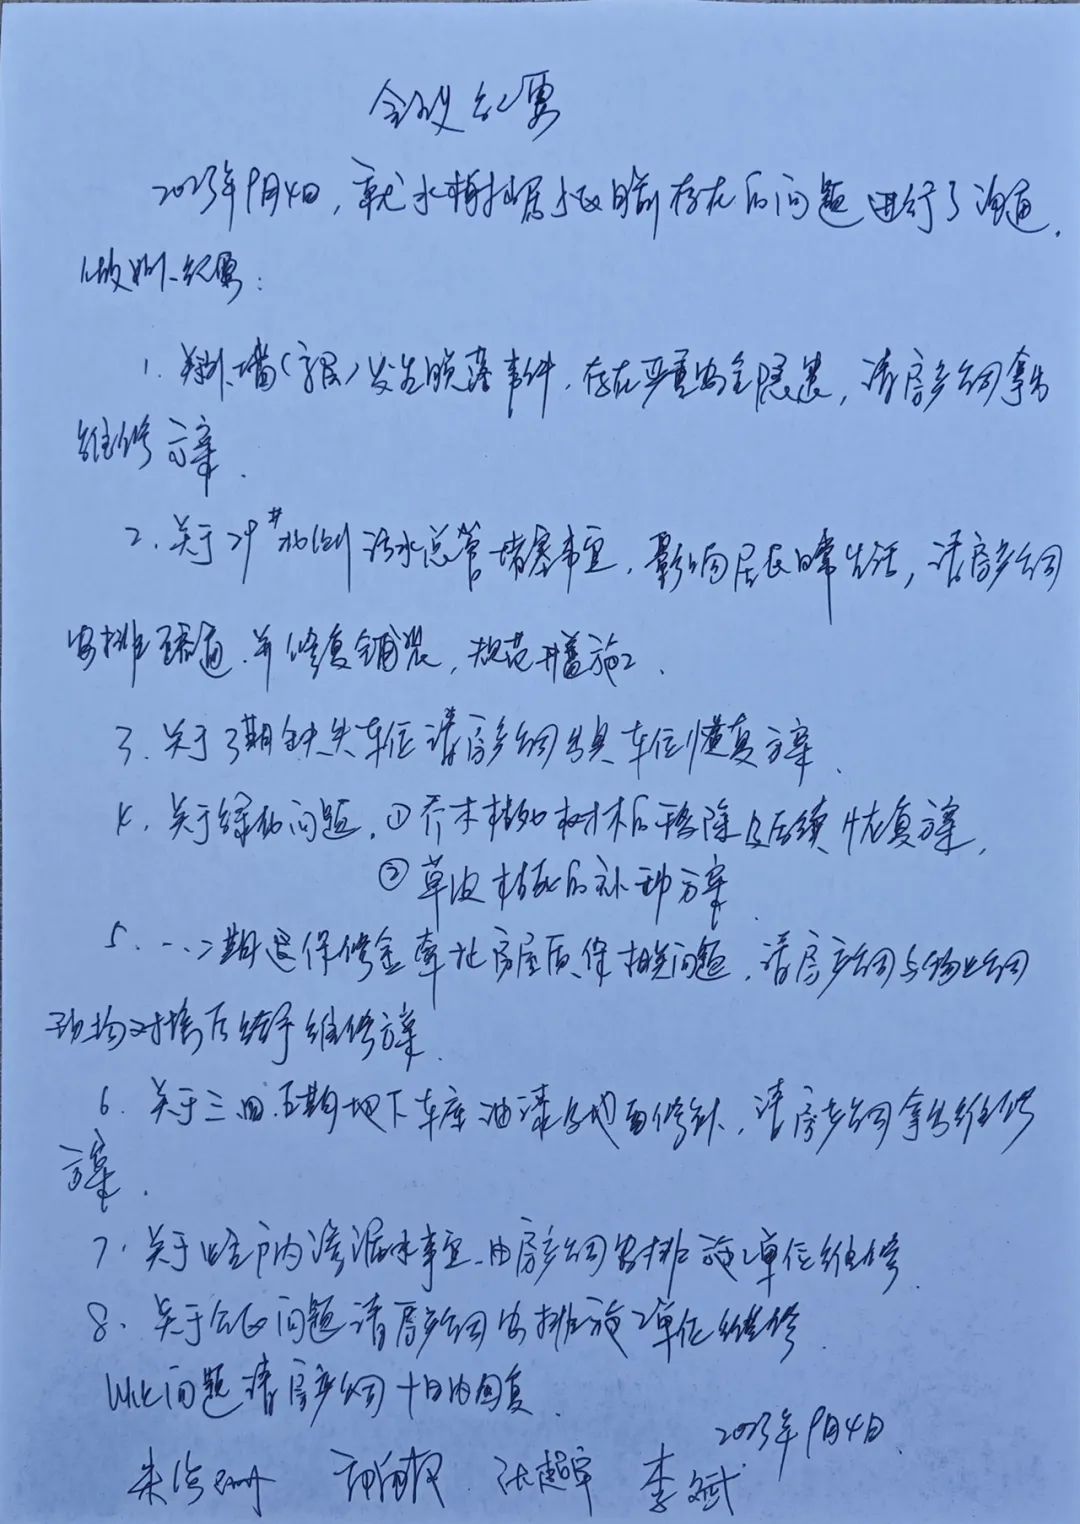 会议纪要
2023年9月4日，就水榭 居小区目前存在的问题进行了沟通，
做如下纪要：
1. 外墙( 层)发生脱落事件，存在严重安全隐患，请房产公司拿出
维修方案．
2. 关于29#北侧污水总管堵塞事宜，影响居民日常生活，请房产公司
安排疏通，并修复铺装，规范井盖施工．
3. 关于3期缺失车位请房产公司出具车位恢复方案．
4. 关于绿化问题，①乔木枯死树木的移除及后续恢复方案，
②草皮枯死的补种方案
5. 一.二期退保修金牵扯房屋质保相关问题，请房产公司与物业公司
对接后给予维修方案．
6. 关于三.四.五期地下车库油漆及地面修补，请房产公司拿出维修
方案．
7. 关于业主户内渗漏水事宜，由房产公司安排施工单位维修．
8. 关于公区问题请房产公司安排施工单位维修．
以上问题请房产公司十日内回复．
2023年9月4日．
朱 张超军 李斌